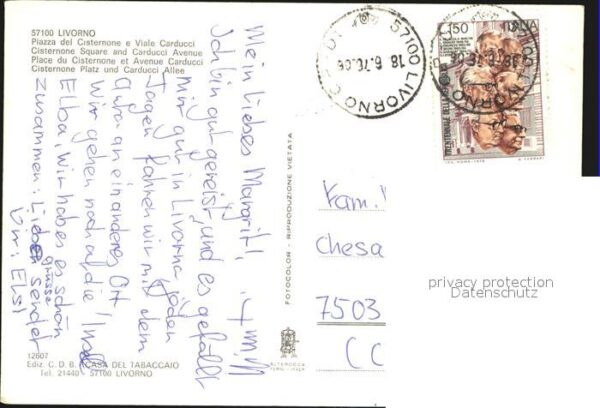 57100 LIVORNO
Piazza del Cisternone e Viale Carducci
Cisternone Square and Carducci Avenue
Place du Cisternone et Avenue Carducci
Cisternone Platz und Carducci Allee
Mein liebes Margritl,
Ich bin gut gereist und es gefällt
mir gut in Livorno, jeden
Tagen fahren wir mit dem
Auto an ein anderes Ort
Wir gehen noch auf die Insel
Elba, Wir haben es schön
zusammen. Liebe
grüsse sendet
dir: Elsi
12607
Ediz. C. D. B. CASA DEL TABACCAIO
Tel. 21440 - 57100 LIVORNO
FOTOCOLOR - RIPRODUZIONE VIETATA
57100 LIVORNO
18.6.76.06
L.150 ITALIA
Fam.
Chesa
7503
privacy protection
Datenschutz